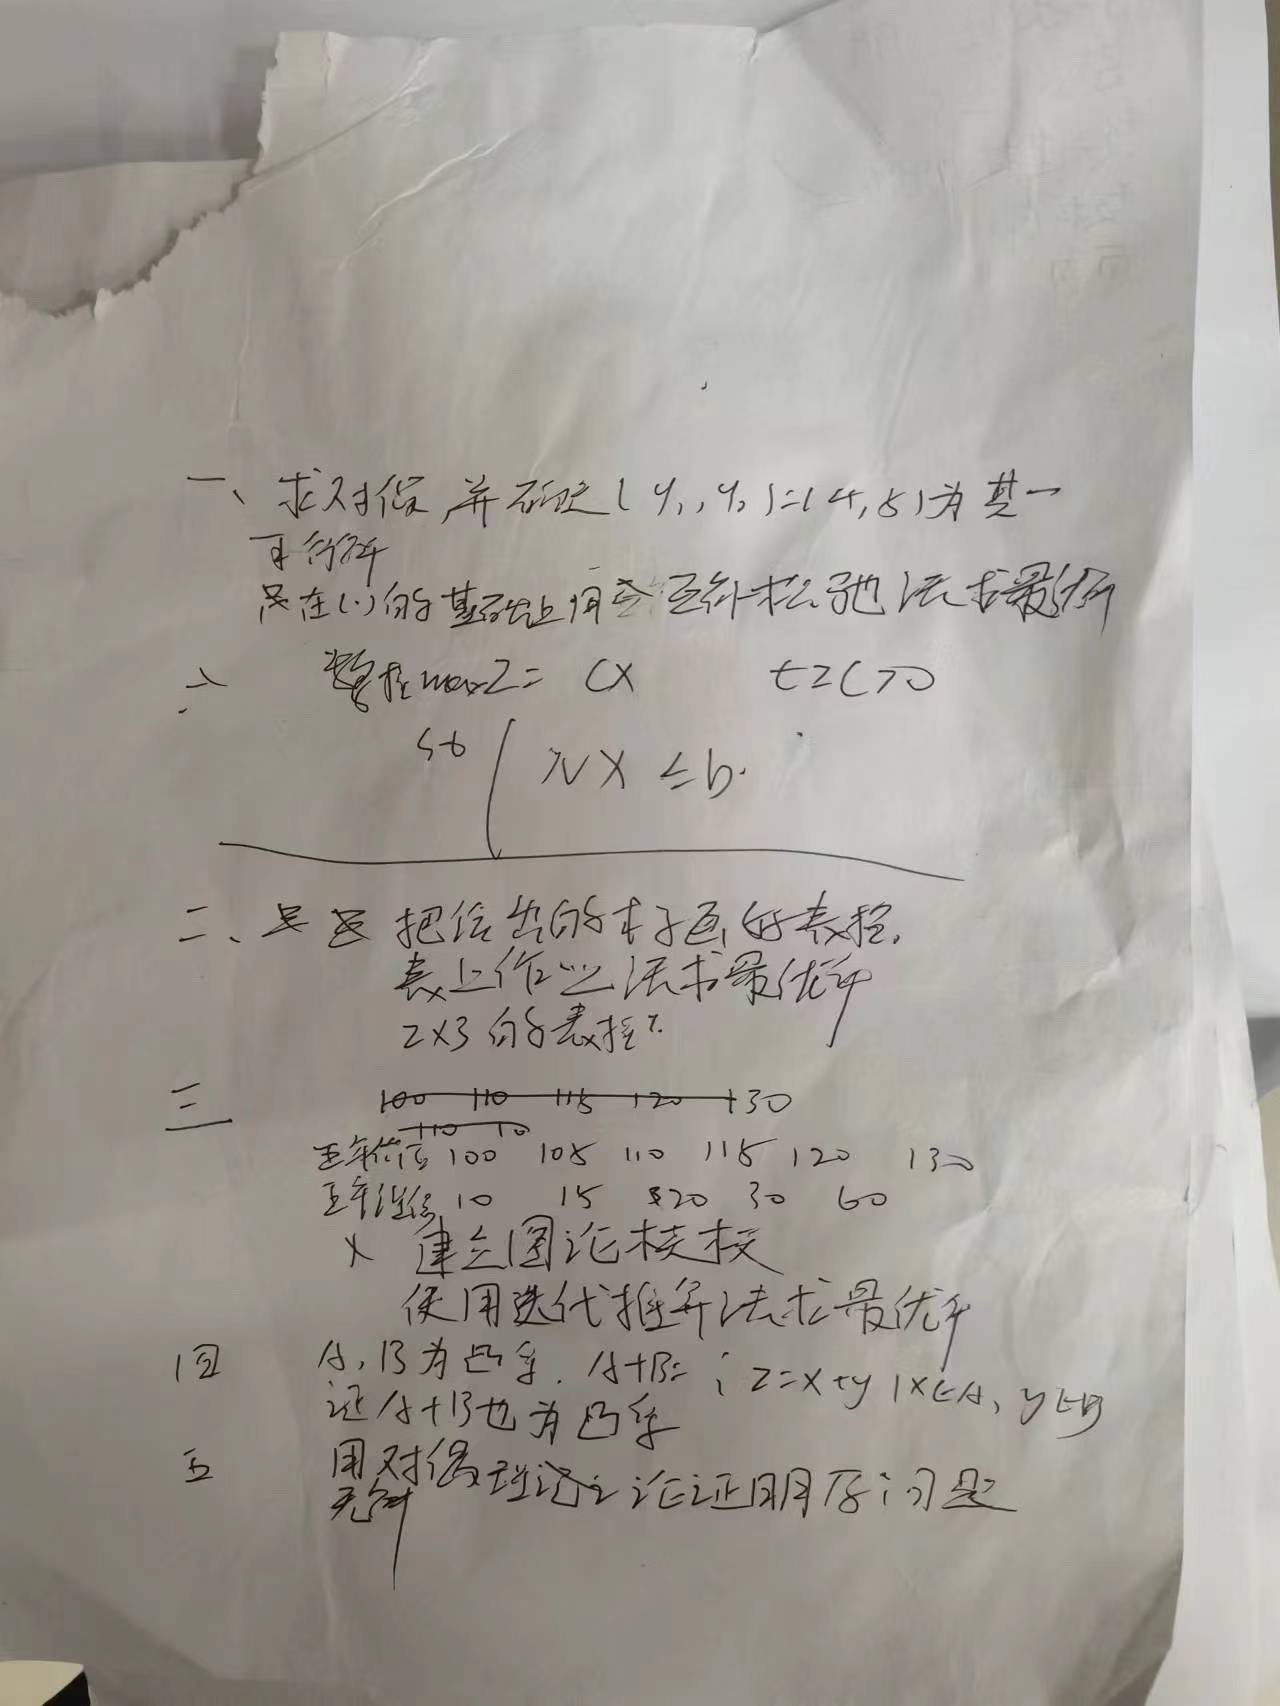 一、求对偶,并确定(y₁,y₂)=(4,5)为其一
可行解
是在(1)的基础上用 互补松弛法求最优解
整控maxZ=CX t≥C>0
st NX≤b.
二、把给出的 画的表控.
表上作业法求最优解
2×3的表控
三 100 110 115 120 130
110 10
五年价 100 105 110 115 120 130
五年维修 10 15 20 30 60
建立图论模校
使用迭代推算法求最优解
四 A,B为凸集. A+B= ; z=x+y |x∈A, y∈B
证A+B也为凸集
五 用对偶理论 论证明原问题
无解